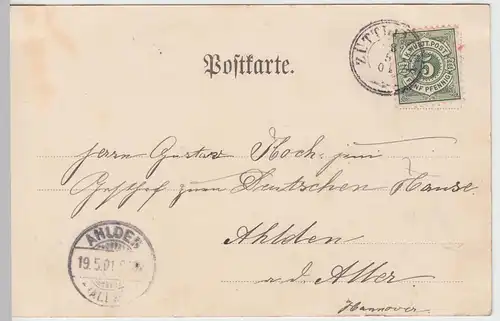 K. WÜRTT. POST
5
FÜNF PFENNIG
Postkarte.
Herrn Gustav Koch jun.
Gasthof zum Deutschen Hause
Ahlden
a. d. Aller
Hannover
AHLDEN
19.5.01
(ALLER)